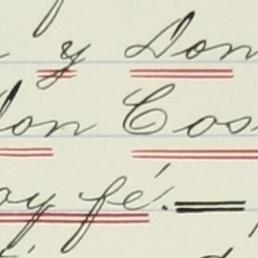 y Don
don Cos
oy fé.